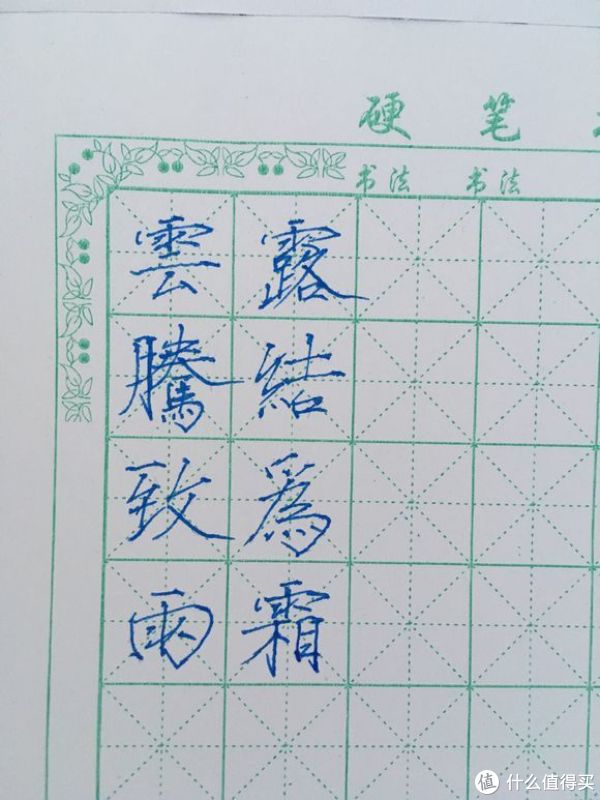 硬笔
书法 书法
雲騰致雨
露結為霜
值 什么值得买